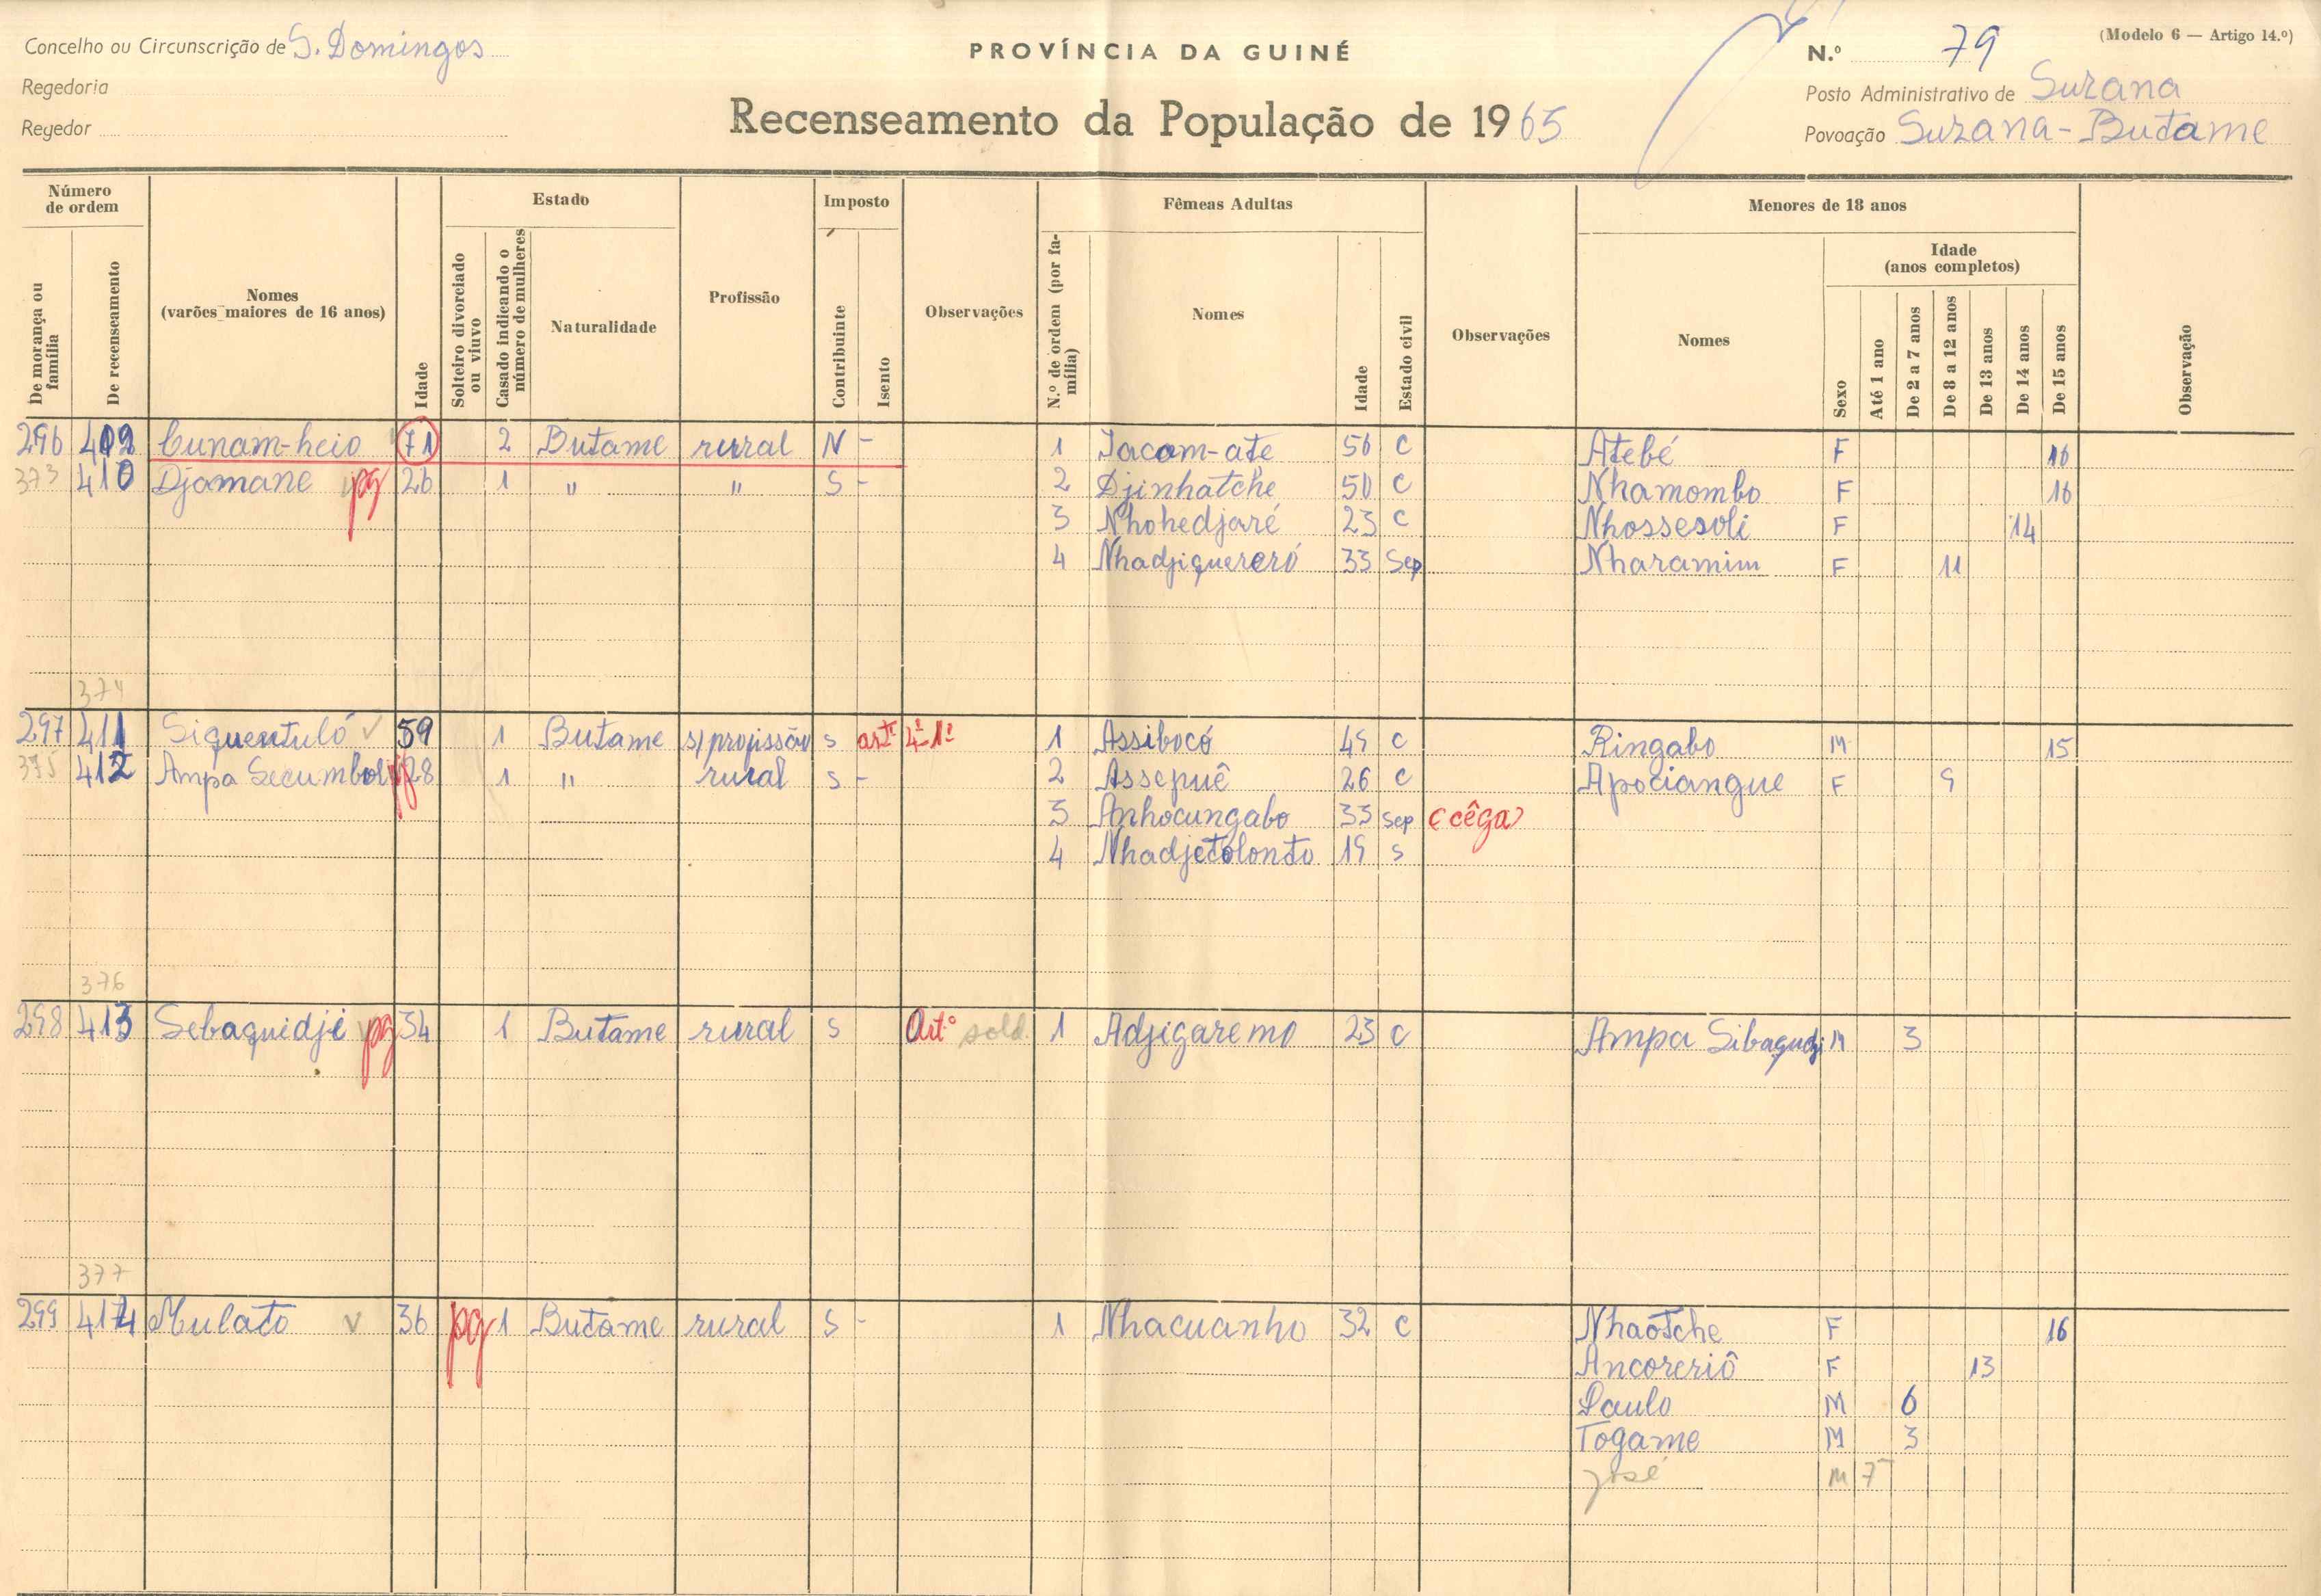 Concelho ou Circunscrição de S. Domingos
PROVÍNCIA DA GUINÉ
N.º 79
(Modelo 6 — Artigo 14.º)
Regedoria
Posto Administrativo de Suzana
Regedor
Recenseamento da População de 1965
Povoação Suzana-Butame
Número de ordem
Estado
Imposto
Fêmeas Adultas
Menores de 18 anos
De morança ou família
De recenseamento
Nomes (varões maiores de 16 anos)
Idade
Solteiro divorciado ou viuvo
Casado indicando o número de mulheres
Naturalidade
Profissão
Contribuinte
Isento
Observações
N.º de ordem (por família)
Nomes
Idade
Estado civil
Observações
Nomes
Sexo
Idade (anos completos)
Até 1 ano
De 2 a 7 anos
De 8 a 12 anos
De 13 anos
De 14 anos
De 15 anos
Observação
296 409 Cunam-heio 71 2 Butame rural N - 1 Iacam-ate 56 C Atebé F 16
373 410 Djamane pg 26 1 " " S - 2 Djinhatche 50 C Nhamombo F 16
3 Nhohedjaré 23 C Nhossesoli F 14
4 Nhadjiquereró 33 Sep Nharamim F 11
374
297 411 Siquentuló v 59 1 Butame s/profissão s artº 4º 1º 1 Assibocó 49 C Ringabo M 15
375 412 Ampa Secumbol pg 28 1 " rural s - 2 Assepuê 26 C Apociangue F 9
3 Anhocungabo 33 sep (cêga)
4 Nhadjetolonto 19 s
376
298 413 Sebaquidji pg 34 1 Butame rural s Artº sold. 1 Adjigaremo 23 C Ampa Sibaquidji M 3
377
299 414 Mulato v 36 pg 1 Butame rural s - 1 Nhacuanho 32 C Nhaotche F 16
Ancoreriô F 13
Paulo M 6
Togame M 3
José M 7